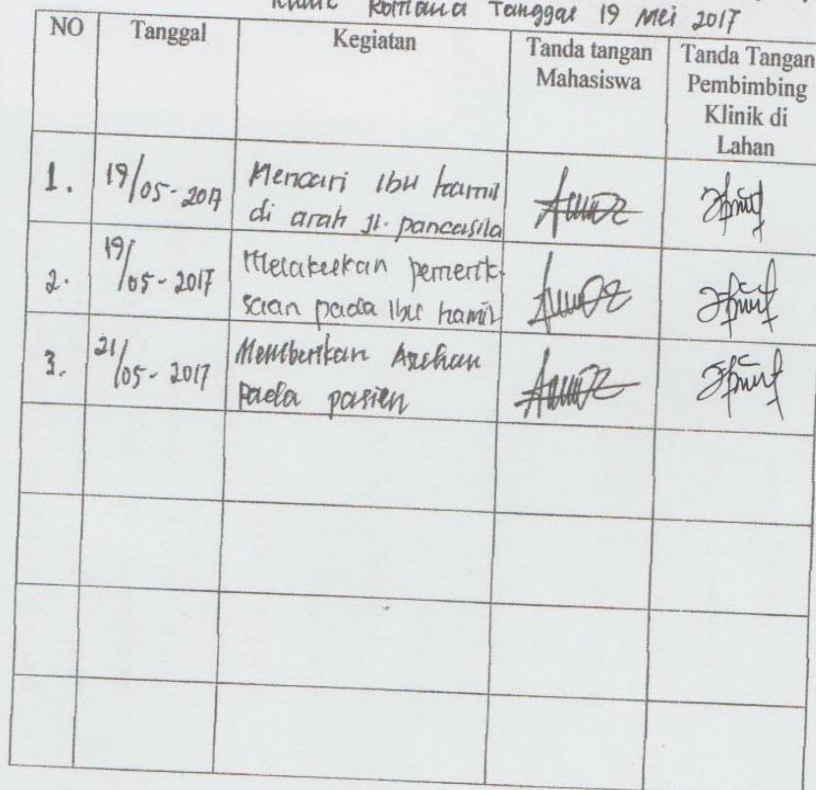 Klinik Romana Tanggal 19 Mei 2017
NO
Tanggal
Kegiatan
Tanda tangan
Mahasiswa
Tanda Tangan
Pembimbing
Klinik di
Lahan
1.
19/05-2017
Mencari Ibu hamil
di arah Jl. pancasila
2.
19/05-2017
Melakukan pemerik-
saan pada Ibu hamil
3.
21/05-2017
Memberikan Asuhan
pada pasien